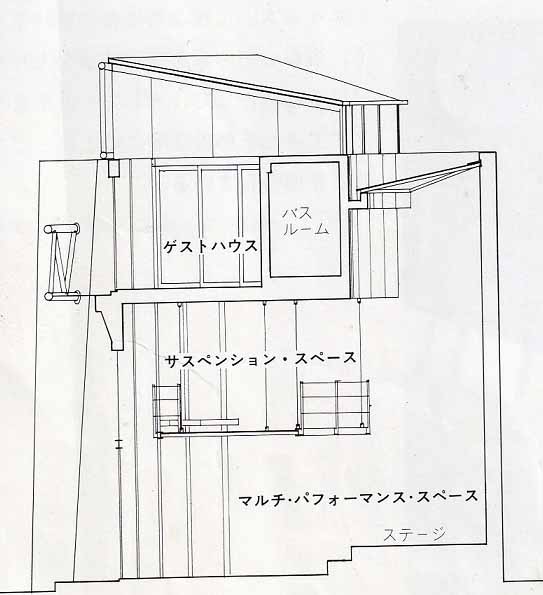 バス
ルーム
ゲストハウス
サスペンション・スペース
マルチ・パフォーマンス・スペース
ステージ